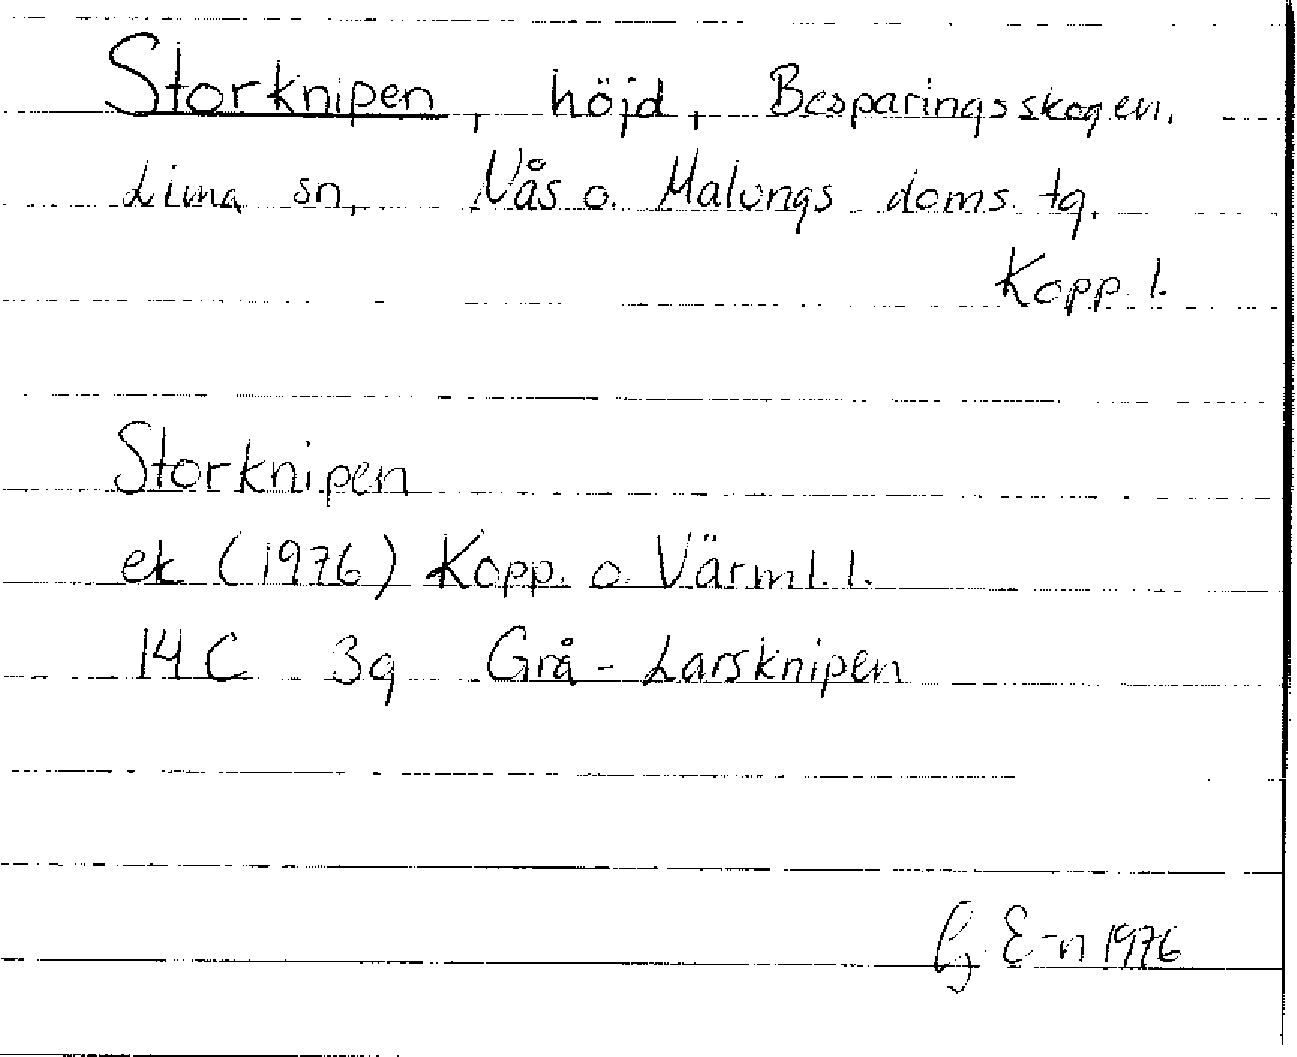 Storknipen, höjd, Besparingsskogen.
Lima sn, Nås o. Malungs doms. tg.
Kopp l.
Storknipen
ek (1976) Kopp. o Värml. l.
14 C 3g Grå-Larsknipen
G E-n 1976